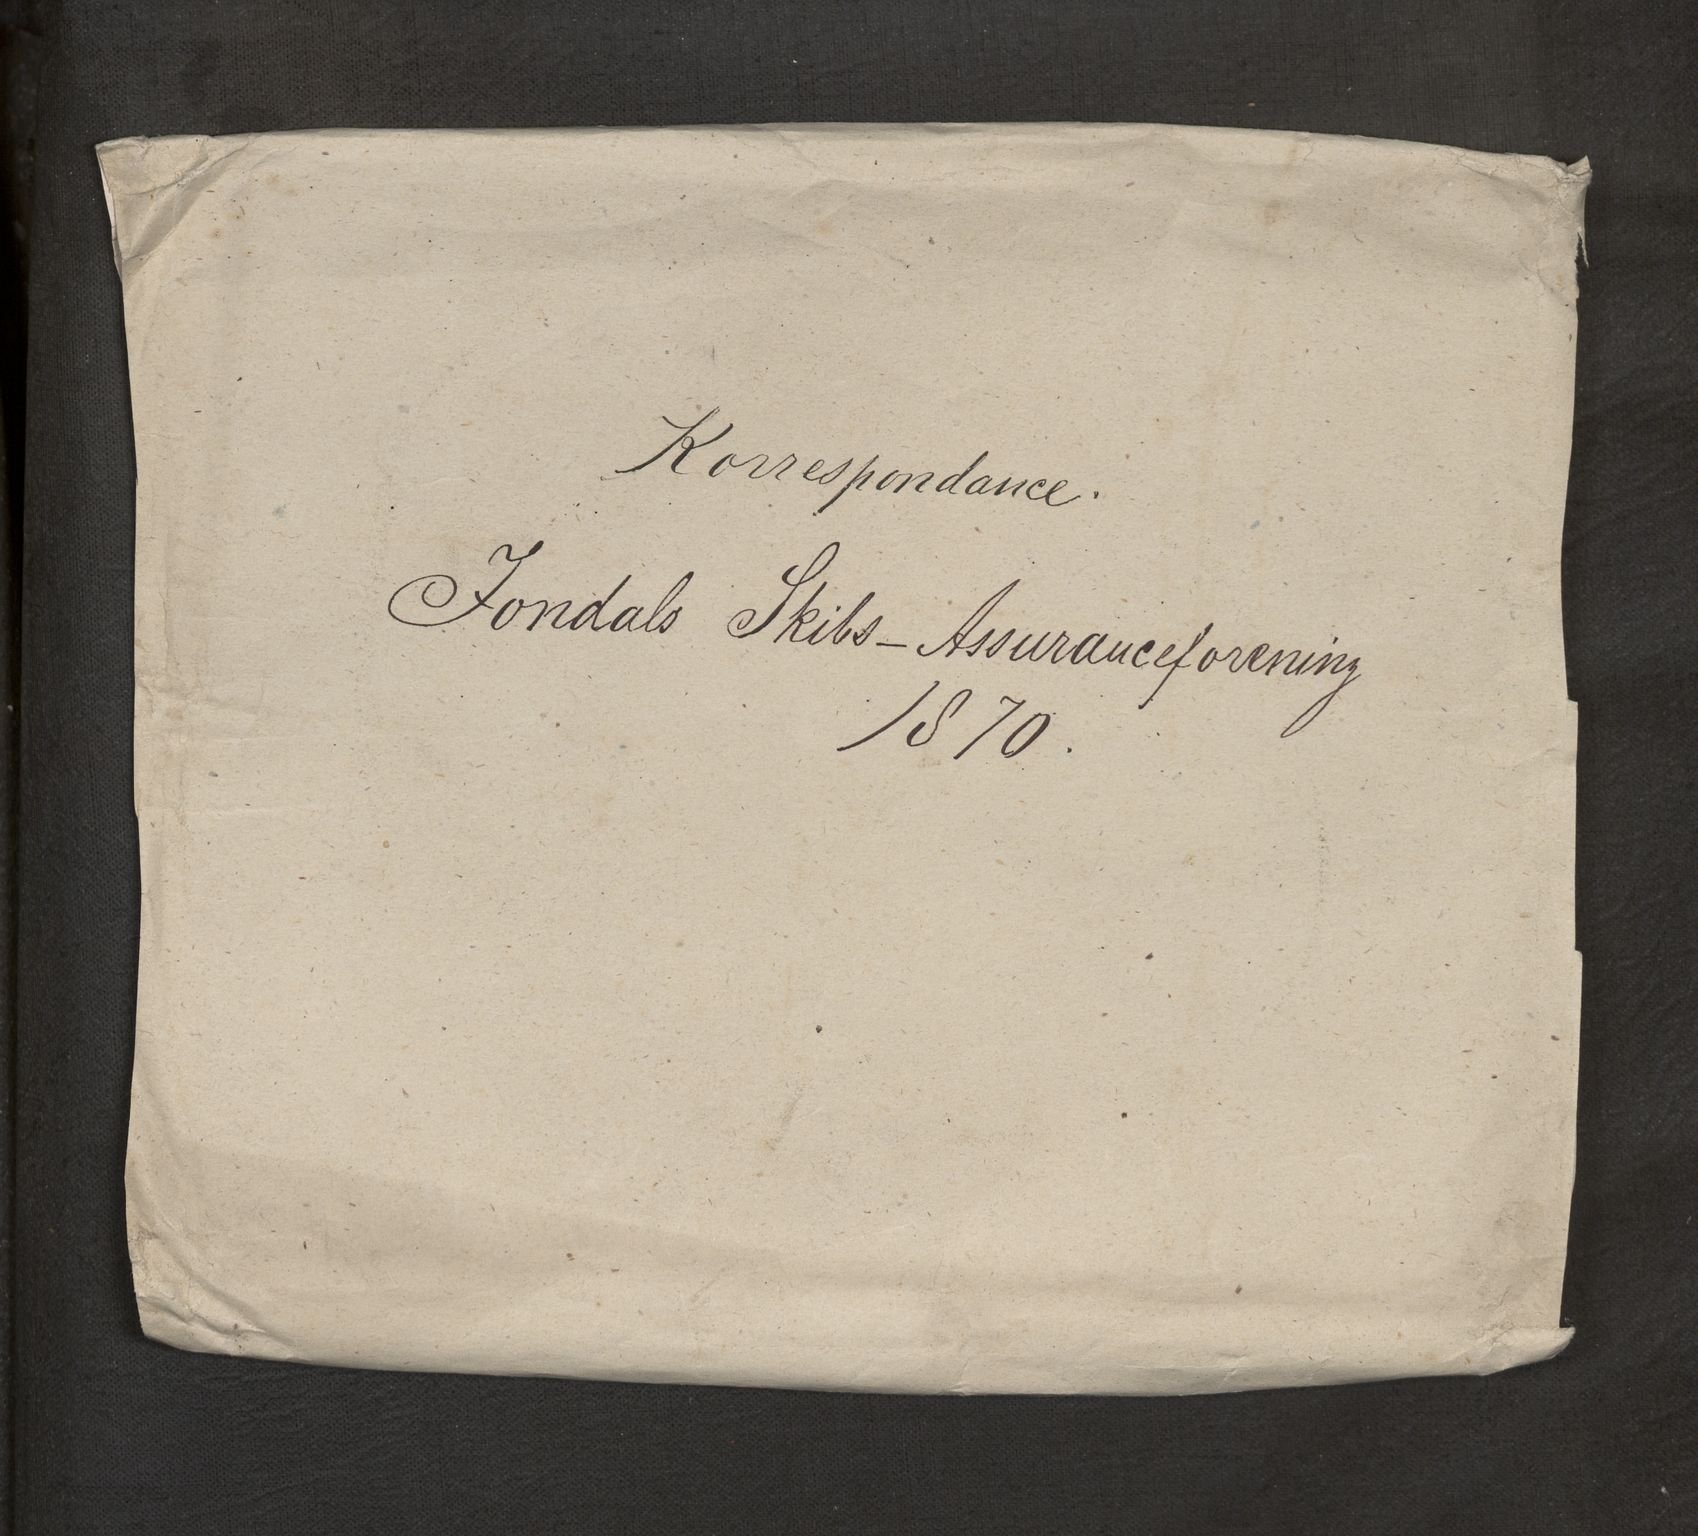 Korrespondance.
Jondals Skibs-Assuranceforening
1870.